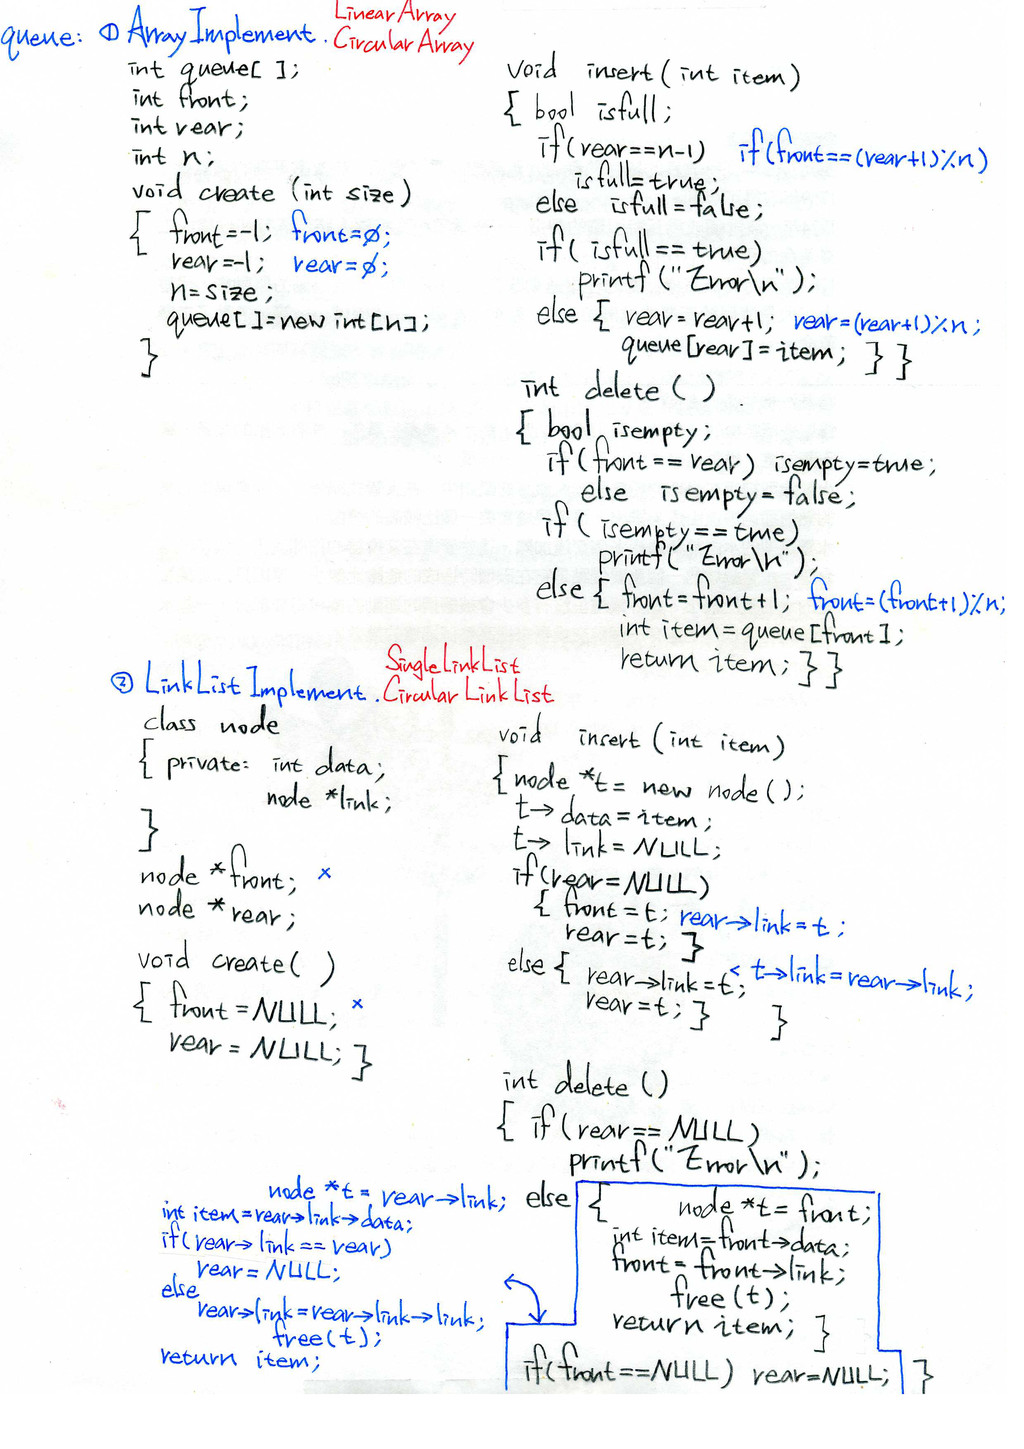 queue: ① Array Implement. Linear Array
Circular Array
int queue[ ];
int front;
int rear;
int n;
void create (int size)
{ front=-1; front=0;
rear=-1; rear=0;
n=size;
queue[]=new int[n];
}
void insert (int item)
{ bool isfull;
if(rear==n-1) if(front==(rear+1)%n)
isfull=true;
else isfull=false;
if( isfull==true)
printf ("Error\n");
else { rear=rear+1; rear=(rear+1)%n;
queue[rear]=item; } }
int delete ( )
{ bool isempty;
if(front==rear) isempty=true;
else isempty=false;
if( isempty==true)
printf("Error\n");
else { front=front+1; front=(front+1)%n;
int item=queue[front];
return item; } }
② Link List Implement. Single Link List
Circular Link List
class node
{ private: int data;
node *link;
}
node *front; ×
node *rear;
void create( )
{ front=NULL; ×
rear=NULL; }
void insert (int item)
{ node *t= new node();
t→data=item;
t→ link=NULL;
if(rear=NULL)
{ front=t; rear→link=t;
rear=t; }
else { rear→link=t; < t→link=rear→link;
rear=t; } }
int delete ()
{ if(rear==NULL)
printf("Error\n");
else { node *t=front;
int item=front→data;
front=front→link;
free(t);
return item; }
if(front==NULL) rear=NULL; }
node *t=rear→link;
int item=rear→link→data;
if(rear→link==rear)
rear=NULL;
else
rear→link=rear→link→link;
free(t);
return item;